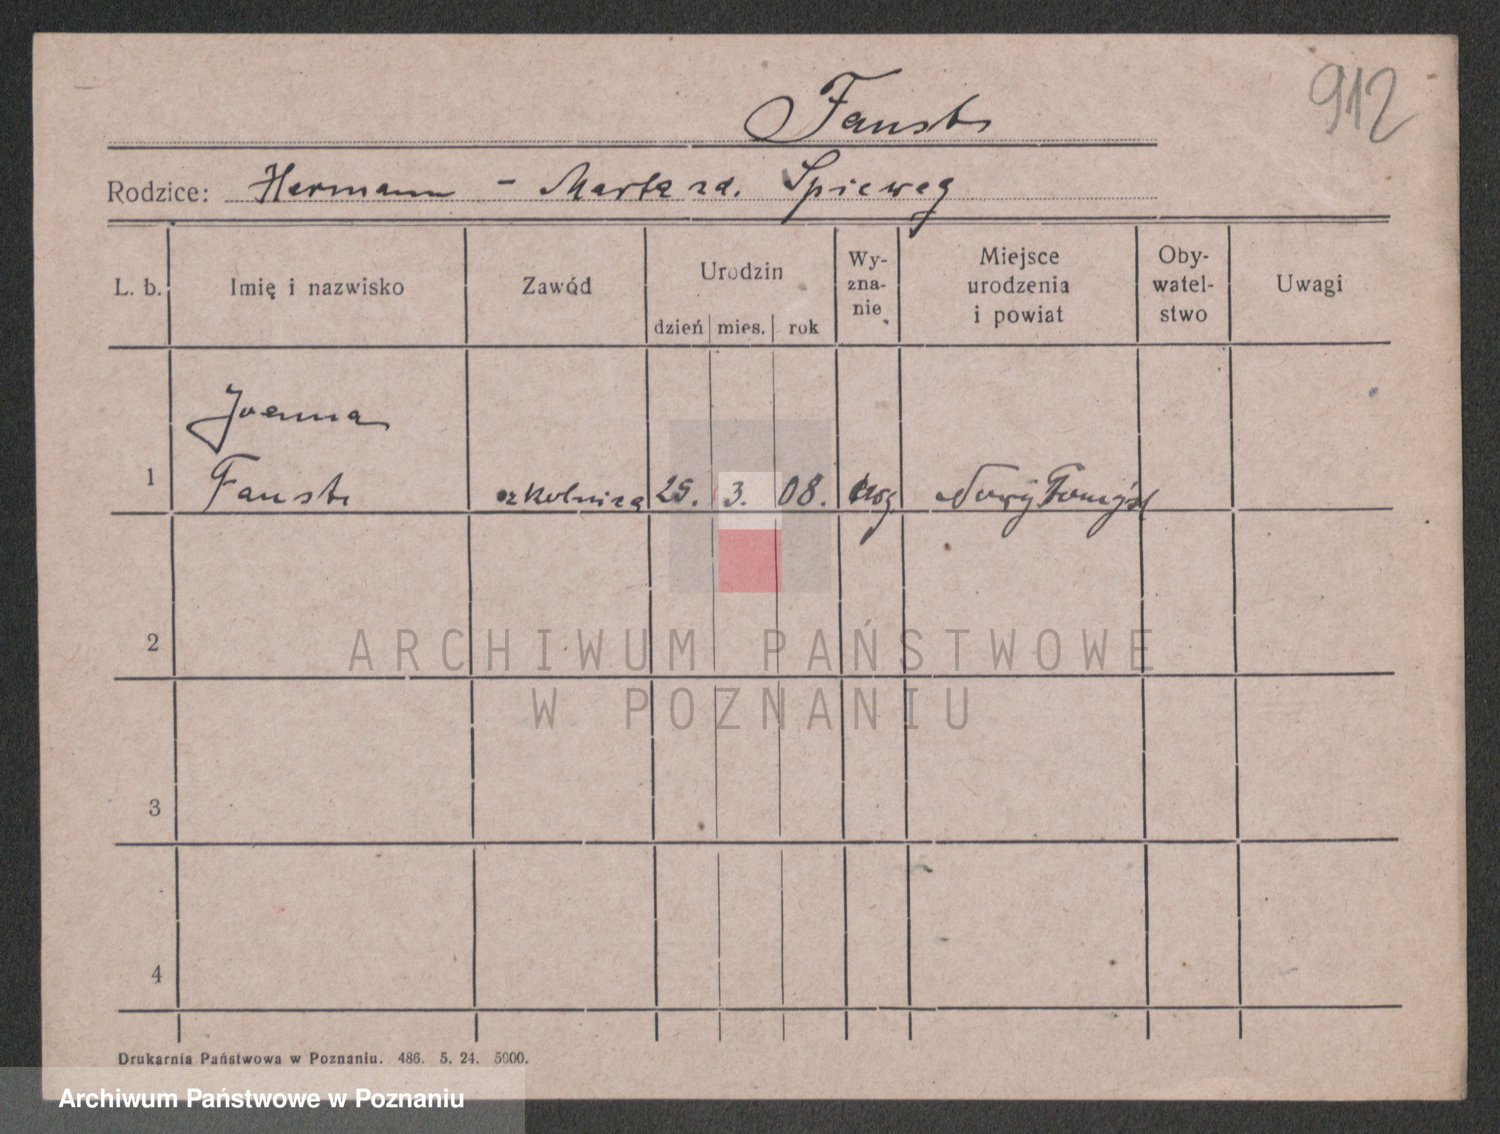 912
Faust
Rodzice: Hermann - Marta zd. Spieweg
L. b. Imię i nazwisko Zawód Urodzin Wy-zna-nie Miejsce urodzenia i powiat Oby-watel-stwo Uwagi
dzień mies. rok
Joanna
1 Faust 25. 3. 08. Nowy Tomyśl
2
3
4
ARCHIWUM PAŃSTWOWE
W POZNANIU
Drukarnia Państwowa w Poznaniu. 486. 5. 24. 5000.
Archiwum Państwowe w Poznaniu